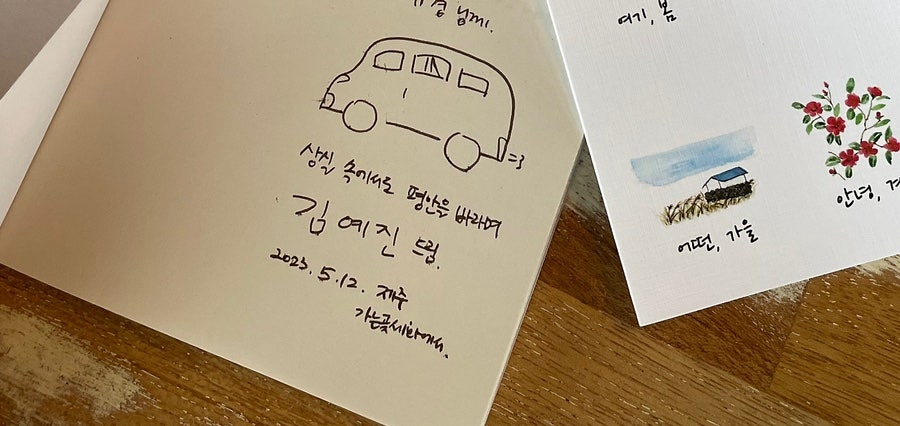 경 님께.
상실 속에서도 평안을 바라며
김예진 드림.
2023. 5.12. 제주
가는곶세화에서.
여기, 봄
어떤, 가을
안녕,